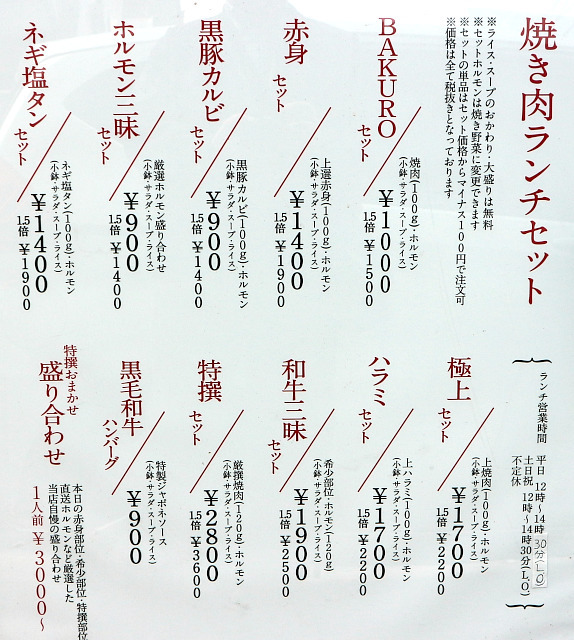 焼き肉ランチセット
※ライス・スープのおかわり、大盛りは無料
※セットホルモンは焼き野菜に変更できます
※セットの単品はセット価格からマイナス100円で注文可
※価格は全て税抜きとなっております
BAKUROセット
焼肉(100g)・ホルモン
(小鉢・サラダ・スープ・ライス)
¥1000
1.5倍 ¥1500
赤身セット
上選赤身(100g)・ホルモン
(小鉢・サラダ・スープ・ライス)
¥1400
1.5倍 ¥1900
黒豚カルビセット
黒豚カルビ(100g)・ホルモン
(小鉢・サラダ・スープ・ライス)
¥900
1.5倍 ¥1400
ホルモン三昧セット
厳選ホルモン盛り合わせ
(小鉢・サラダ・スープ・ライス)
¥900
1.5倍 ¥1400
ネギ塩タンセット
ネギ塩タン(100g)・ホルモン
(小鉢・サラダ・スープ・ライス)
¥1400
1.5倍 ¥1900
ランチ営業時間
平日 12時〜14時30分(L.O)
土日祝 12時〜14時30分(L.O)
不定休
極上セット
上焼肉(100g)・ホルモン
(小鉢・サラダ・スープ・ライス)
¥1700
1.5倍 ¥2200
ハラミセット
上ハラミ(100g)・ホルモン
(小鉢・サラダ・スープ・ライス)
¥1700
1.5倍 ¥2200
和牛三昧セット
希少部位・ホルモン(120g)
(小鉢・サラダ・スープ・ライス)
¥1900
1.5倍 ¥2500
特撰セット
厳撰焼肉(120g)・ホルモン
(小鉢・サラダ・スープ・ライス)
¥2800
1.5倍 ¥3600
黒毛和牛ハンバーグ
特製ジャポネソース
(小鉢・サラダ・スープ・ライス)
¥900
特撰おまかせ
盛り合わせ
本日の赤身部位・希少部位・特撰部位
直送ホルモンなど厳選した
当店自慢の盛り合わせ
1人前 ¥3000〜